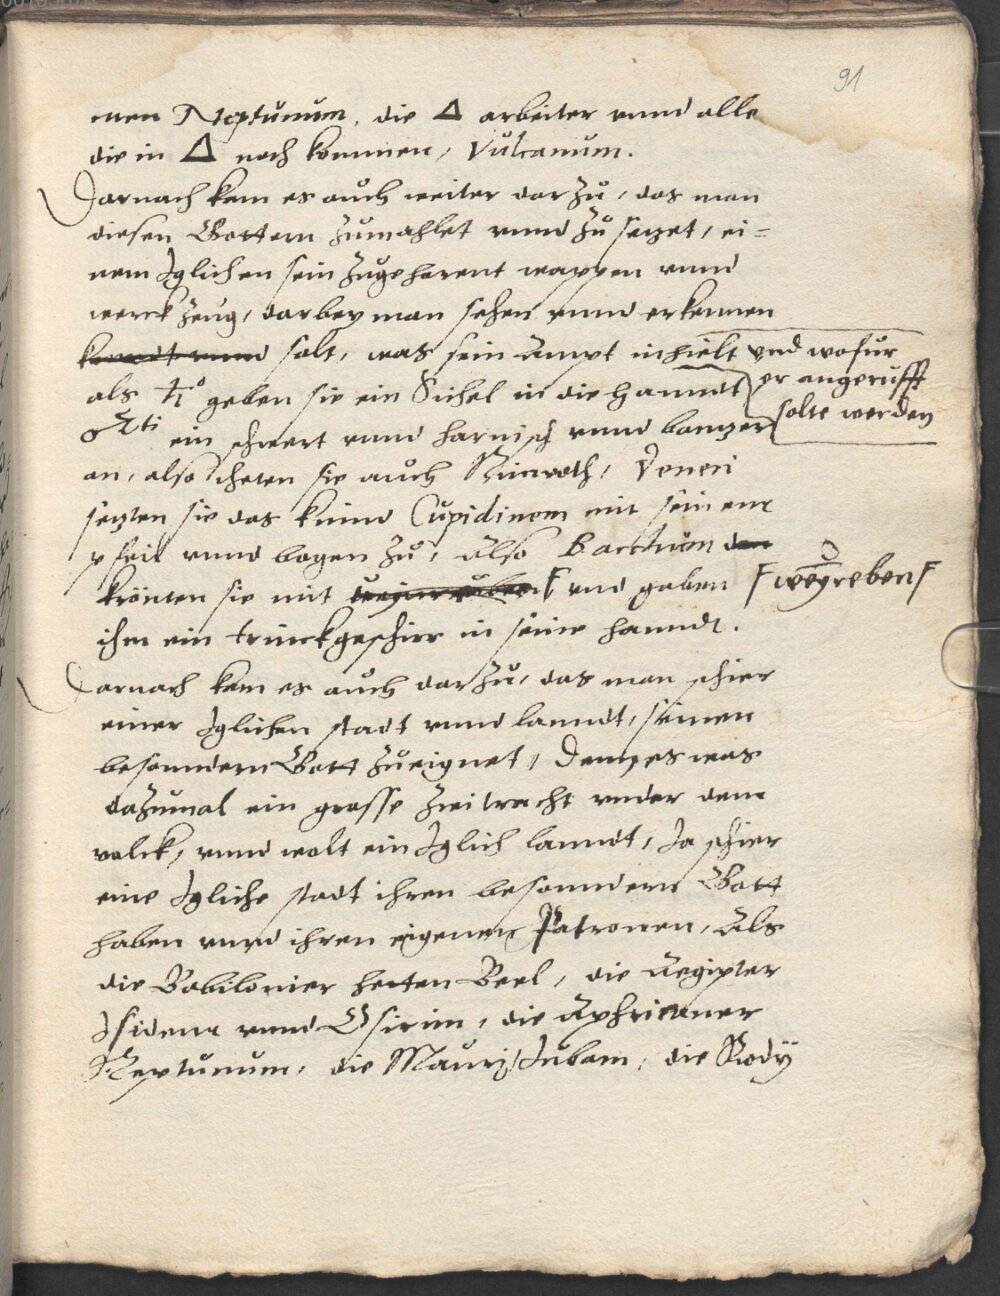 91
men Neptunum, die △ arbeiter vnnd alle
die in △ noch kommen, Vulcanum.
Darnach kam es auch weiter darzu, das man
diesen Gottern zumahlet vnnd zu setzet, ei=
nem Iglichen sein zugehorent wappen vnnd
werckzeug, darbey man sehen vnnd erkennen
konndt vnnd solt, was sein Ampt inhielt vnd wofur
er angerufft
solte werden
als ♄º geben sie ein Sichel in die Hanndt
♂ti ein schwert vnnd harnisch vnnd banzer
an, also theten sie auch Nimroth, Veneri
setzten sie das kinnd Cupidinem mit seinem
pfeil vnnd bogen zu, Also Bacchum den
krönten sie mit vnd gaben weynreben
ihm ein trinckgeschirr in seine hanndt.
Darnach kam es auch darzu, das man schier
einer Iglichen stadt vnnd lanndt, seinen
besonndern Gott zueignet, Denn es was
dazumal ein grosse zwitracht vnder dem
volck, vnnd wolt ein Iglich lanndt, Ja schier
eine Igliche stadt ihren besonndern Gott
haben vnnd ihren eigenen Patronen, Als
die Babilonier hetten Beel, die Aegipter
Isidem vnnd Osirim, die Aphricaner
Neptunum, die Mauri Jubam, die Rodÿ